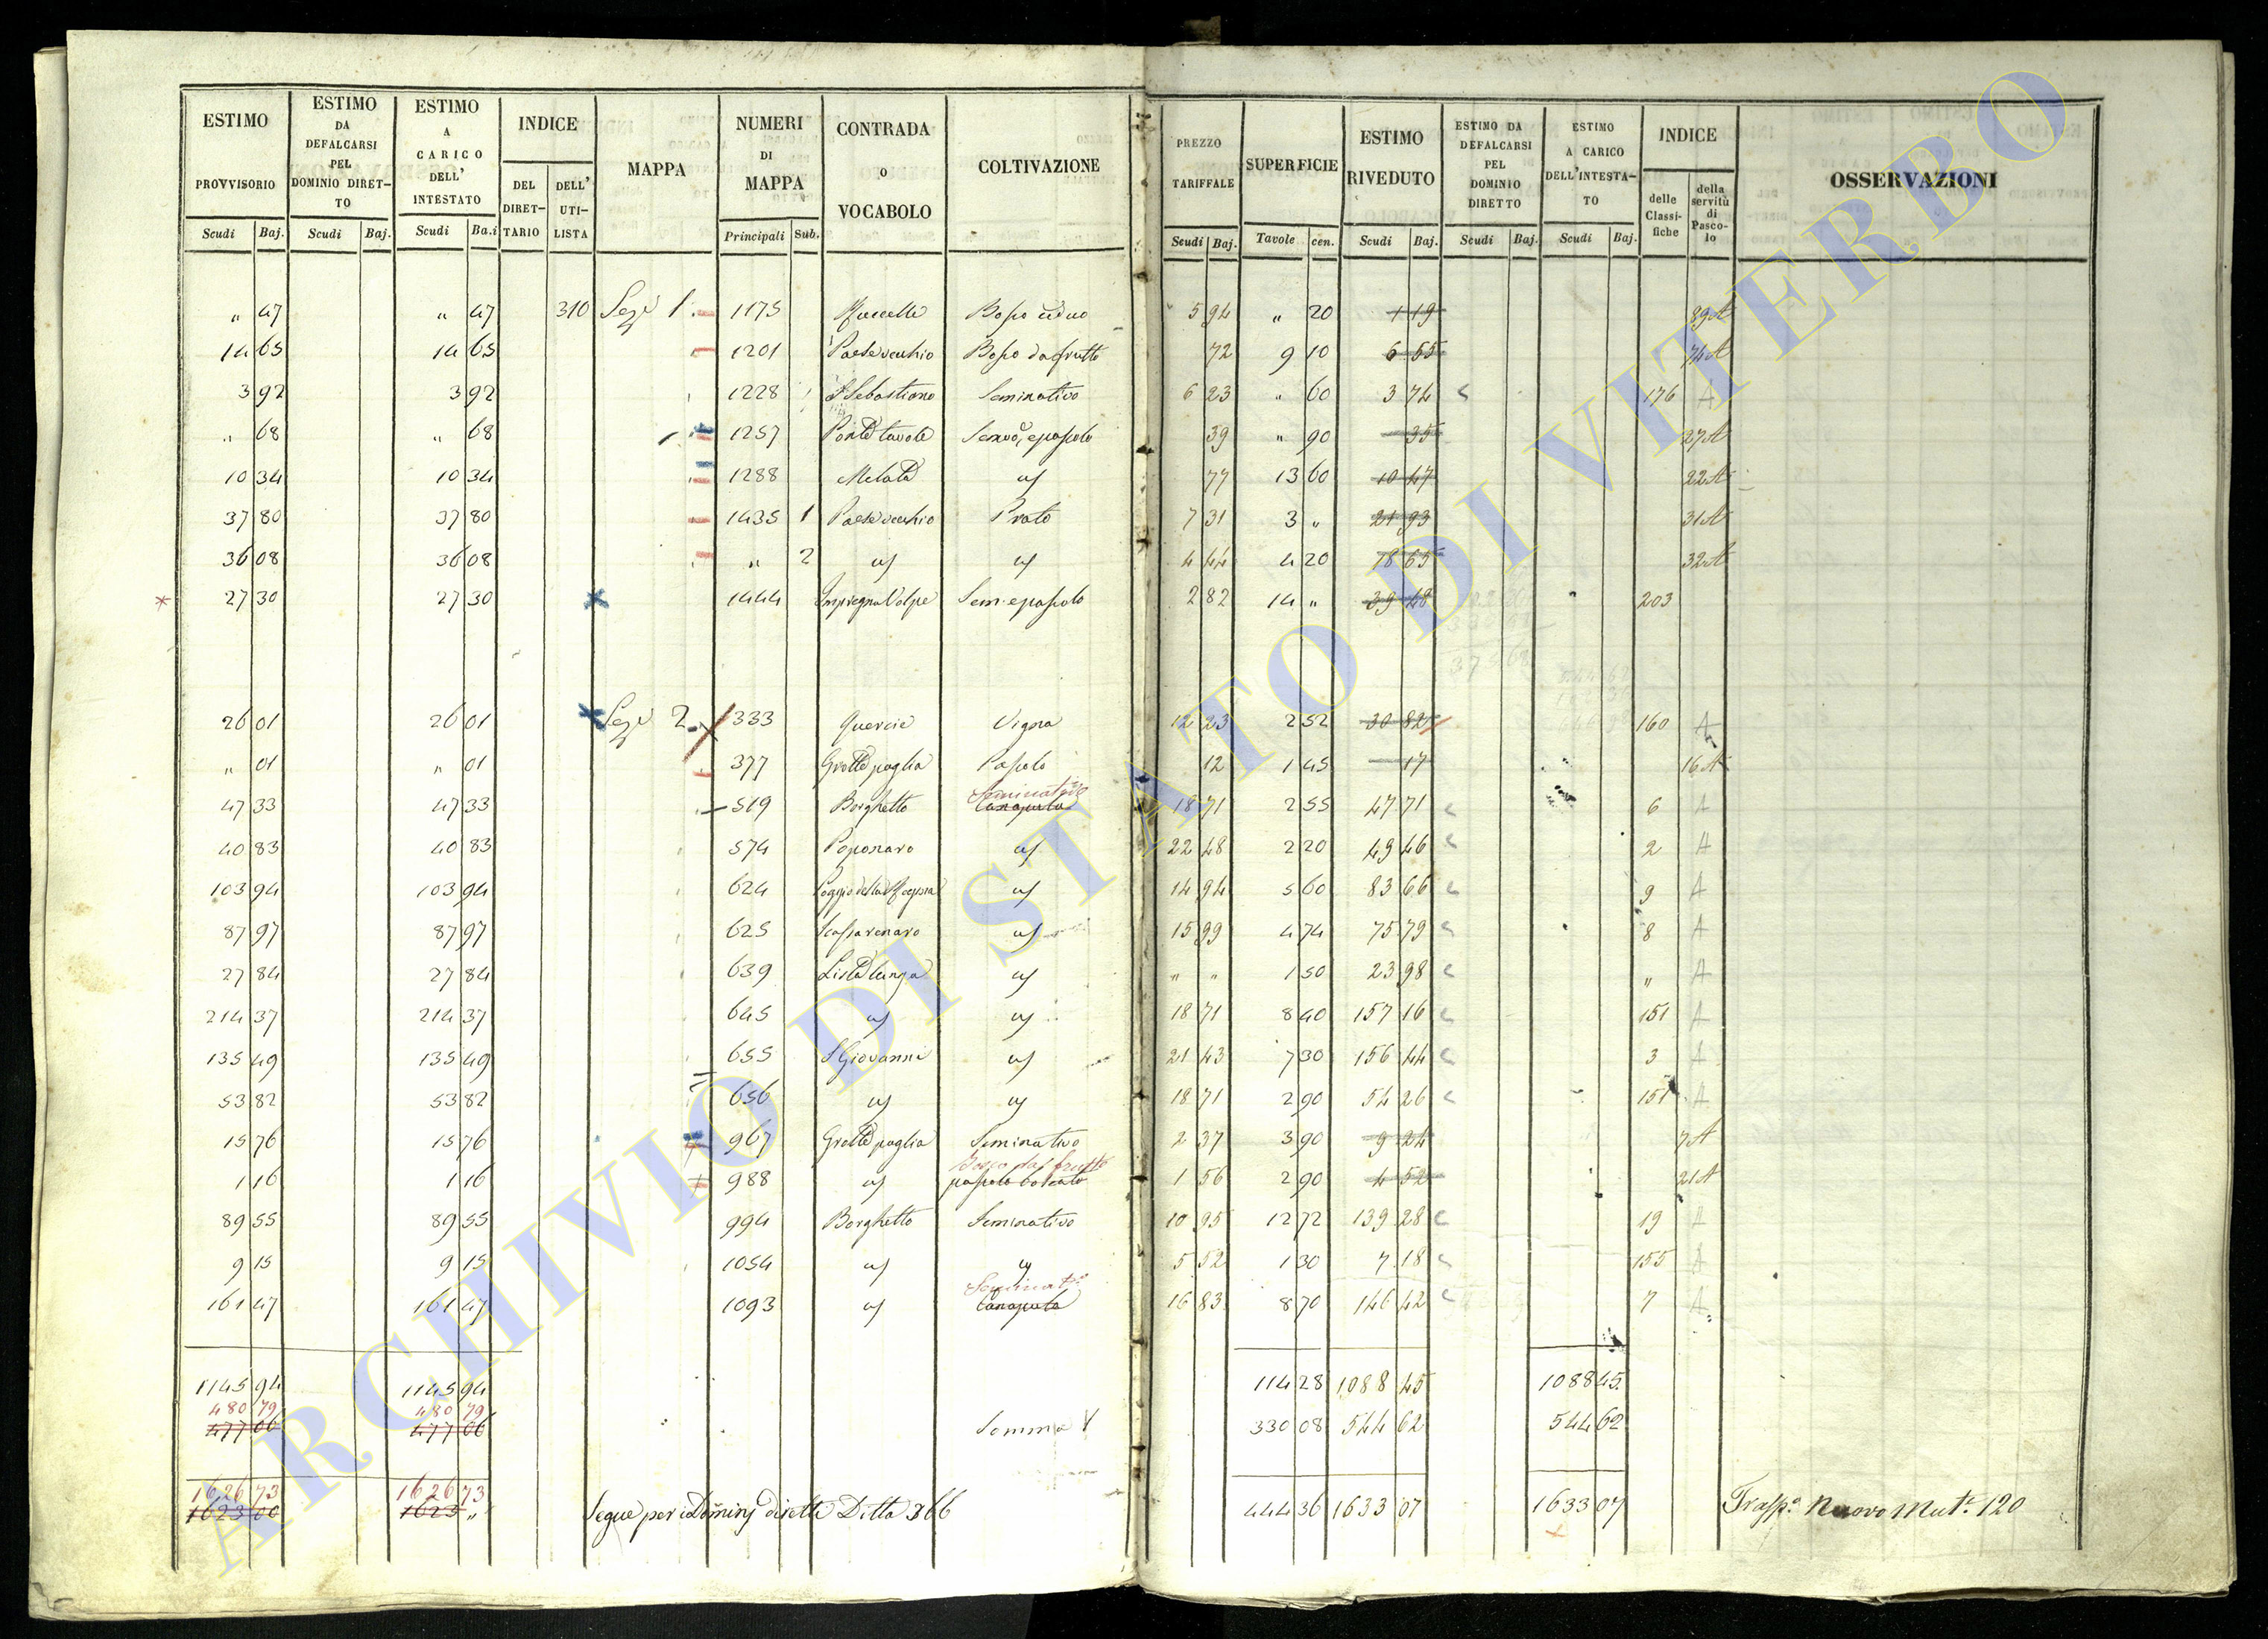 ESTIMO PROVVISORIO Scudi Baj.
ESTIMO DA DEFALCARSI PEL DOMINIO DIRET-TO Scudi Baj.
ESTIMO A CARICO DELL' INTESTATO Scudi Ba.i
INDICE DEL DIRET-TARIO DELL' UTI-LISTA
MAPPA
NUMERI DI MAPPA Principali Sub.
CONTRADA O VOCABOLO
COLTIVAZIONE
PREZZO TARIFFALE Scudi Baj.
SUPERFICIE Tavole cen.
ESTIMO RIVEDUTO Scudi Baj.
ESTIMO DA DEFALCARSI PEL DOMINIO DIRETTO Scudi Baj.
ESTIMO A CARICO DELL'INTESTA-TO Scudi Baj.
INDICE delle Classi-fiche della servitù di Pasco-lo
OSSERVAZIONI
" 47 " 47 310 Sez.e 1. 1175 Bosco ceduo 5 94 " 20 1 19 89 A
14 65 14 65 1201 Paese vecchio Bosco da frutto 72 9 10 6 55 74 A
3 92 3 92 1228 S Sebastiano Seminativo 6 23 " 60 3 74 176 A
" 68 " 68 1257 Ponte tavole Semvo, e pascolo 39 " 90 35 27 A
10 34 10 34 1288 Melata 77 13 60 10 47 22 A
37 80 37 80 1435 1 Paese vecchio Prato 7 31 3 " 21 93 31 A
36 08 36 08 " 2 4 44 4 20 18 65 32 A
27 30 27 30 1444 Impregna Volpe Sem. e pascolo 2 82 14 " 39 48 203
26 01 26 01 Sez.e 2. 333 Quercie Vigna 12 23 2 52 30 82 160 A
" 01 " 01 377 Grotte paglia Pascolo 12 1 45 17 16 A
47 33 47 33 519 Borghetto Canapula Seminativo 18 71 2 55 47 71 6 A
40 83 40 83 574 Poponaro 22 48 2 20 49 46 2 A
103 94 103 94 624 Poggio della 14 94 5 60 83 66 9 A
87 97 87 97 625 Scassarenaro 15 99 4 74 75 79 8 A
27 84 27 84 639 Lista lunga " " 1 50 23 98 " A
214 37 214 37 645 18 71 8 40 157 16 151 A
135 49 135 49 655 S Giovanni 21 43 7 30 156 44 3 A
53 82 53 82 656 18 71 2 90 54 26 151 A
15 76 15 76 967 Grotte paglia Seminativo 2 37 3 90 9 24 7 A
1 16 1 16 988 pascolo boscato Bosco da frutto 1 56 2 90 4 52 21 A
89 55 89 55 994 Borghetto Seminativo 10 95 12 72 139 28 19 A
9 15 9 15 1054 5 52 1 30 7 18 155 A
161 47 161 47 1093 Canapula Seminat.o 16 83 8 70 146 42 7 A
1145 94 1145 94 114 28 1088 45 1088 45
480 79 480 79
477 06 477 06 Somma 330 08 544 62 544 62
1626 73 1626 73
1623 00 1623 " Segue per i Dominj diretti Ditta 366 444 36 1633 07 1633 07 Trasp.o Nuovo Mut.e 120
ARCHIVIO DI STATO DI VITERBO